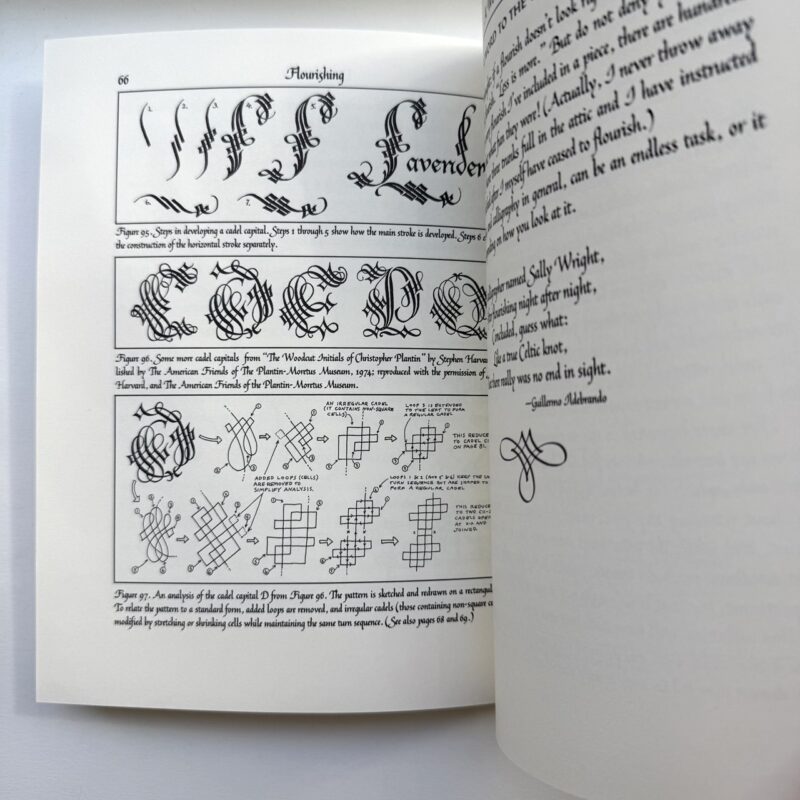 66
Flourishing
1. 2. 3. 4. 5.
Lavender
6. 7.
Figure 95. Steps in developing a cadel capital. Steps 1 through 5 show how the main stroke is developed. Steps 6
the construction of the horizontal stroke separately.
Figure 96. Some more cadel capitals from "The Woodcut Initials of Christopher Plantin" by Stephen Harvard
lished by The American Friends of The Plantin-Moretus Museum, 1974; reproduced with the permission of
Harvard, and The American Friends of the Plantin-Moretus Museum.
AN IRREGULAR CADEL
(IT CONTAINS NON-SQUARE
CELLS)
LOOP 5 IS EXTENDED
TO THE LEFT TO FORM
A REGULAR CADEL
THIS REDUCE
TO CADEL
ON PAGE 81.
ADDED LOOPS (CELLS)
ARE REMOVED TO
SIMPLIFY ANALYSIS.
TURN SEQUENCE BUT ARE
FORM A REGULAR CADEL
THIS REDUCE
TO TWO
CADELS OPEN
AT
JOINED.
Figure 97. An analysis of the cadel capital D from Figure 96. The pattern is sketched and redrawn on a rectangul
To relate the pattern to a standard form, added loops are removed, and irregular cadels (those containing non-square
modified by stretching or shrinking cells while maintaining the same turn sequence. (See also pages 68 and 69.)
TO THE
if a flourish doesn't look right
"Less is more." But do not deny
flourish I've included in a piece, there are hundreds
what fun they were! (Actually, I never throw away
three trunks full in the attic and I have instructed
after I myself have ceased to flourish.)
calligraphy in general, can be an endless task, or it
on how you look at it.
named Sally Wright,
flourishing night after night,
Concluded, guess what:
Like a true Celtic knot,
there really was no end in sight.
—Guillermo Ildebrando